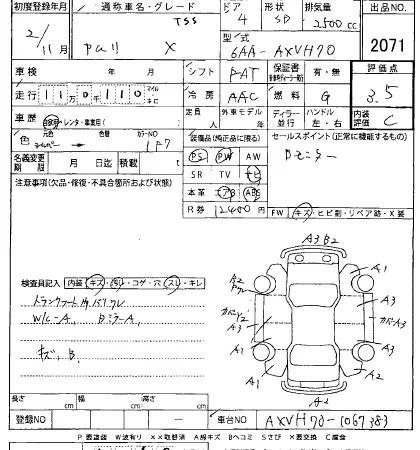 初度登録年月 通称車名・グレード ドア 形状 排気量 出品NO.
TSS 4 SD 2500 cc
2/11月 X 型式 6AA-AXVH70 2071
車検 年 月 シフト FAT 保証書 有・無 評価点
走行 110110 マイル キロ 冷房 AAC 燃料 G 3.5
車歴 自家・レンタ・事業用( ) 定員 人 外車モデル 年 ディーラー 並行 ハンドル 左・右 内装評価 C
色 元色 色替 カラーNO 1F7 装備品(純正品に限る) セールスポイント(正常に機能するもの)
名義変更期限 月 日迄 積載 t PS PW AW
注意事項(欠品・修復・不具合箇所および状態) SR TV ナビ
本革 エアB ABS
R券 12400円 FW キズ・ヒビ割・リペア跡・X要
A3 B2
検査員記入 内装 キズ・汚レ・コゲ・穴・スレ・キレ
W/C-A, Bミラ-A,
キズ, B,
A1 A1
A2 A3
カバーA3
A3
A1 A1
A1 A2
A2
長さ cm 幅 cm 高さ cm
登録NO 車台NO AXVH70-1067383
P 要塗装 W波有り ××取替済 A線キズ Bヘコミ Sさび X要交換 C腐食